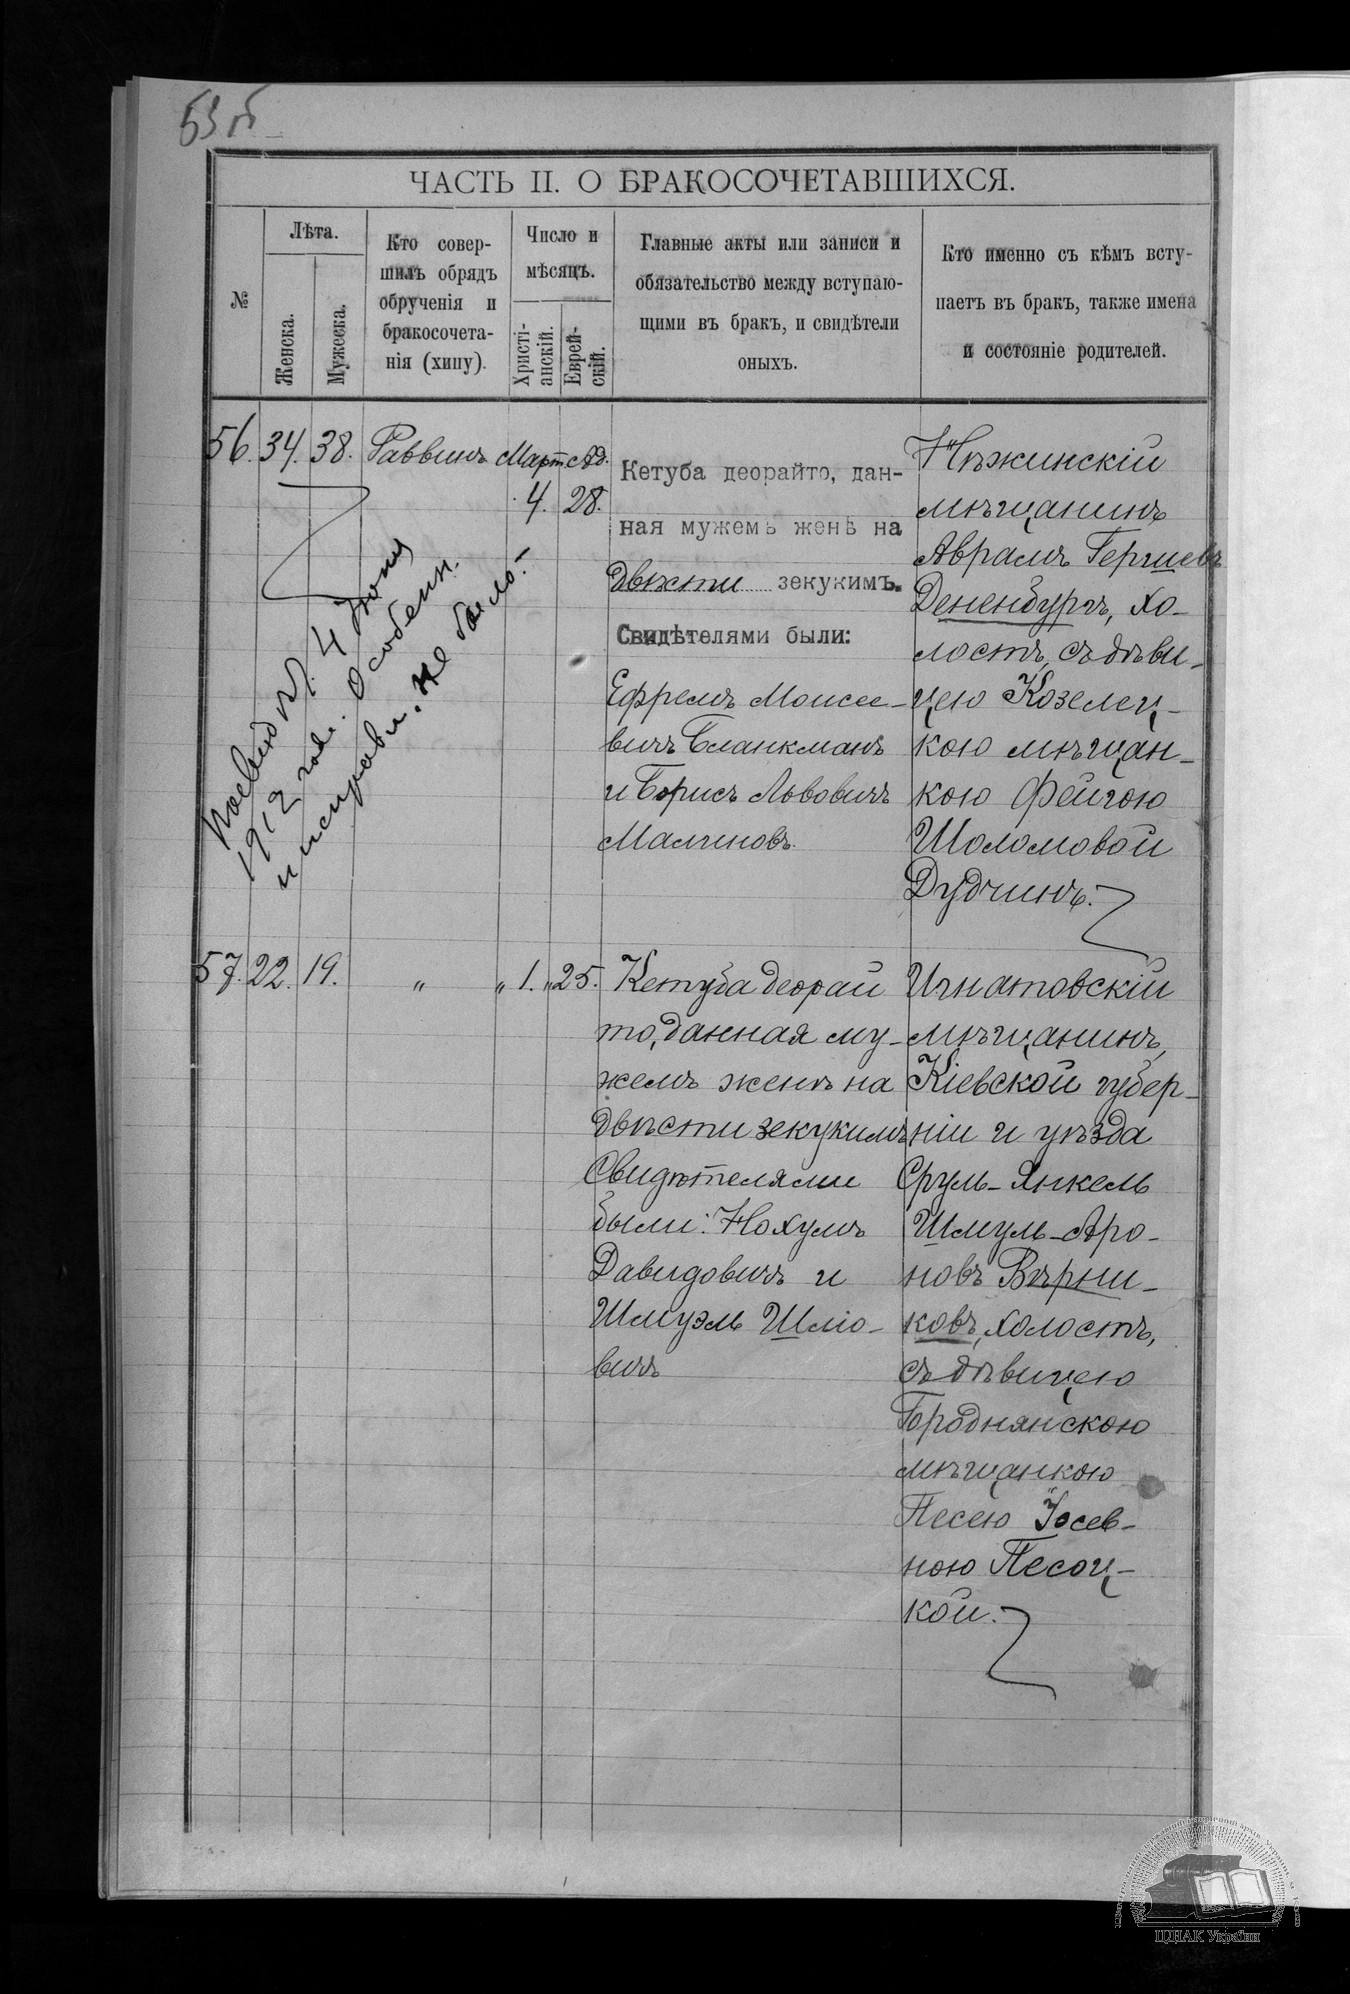 53 об
ЧАСТЬ II. О БРАКОСОЧЕТАВШИХСЯ.
№
Лѣта.
Женска.
Мужеска.
Кто совер-
шилъ обрядъ
обрученія и
бракосочета-
нія (хипу).
Число и
мѣсяцъ.
Христі-
анскій.
Еврей-
скій.
Главные акты или записи и
обязательство между вступаю-
щими въ бракъ, и свидѣтели
оныхъ.
Кто именно съ кѣмъ всту-
паетъ въ бракъ, также имена
и состояніе родителей.
56. 34. 38. Раввинъ Март. Ад.
4. 28.
Кетуба деорайто, дан-
ная мужемъ женѣ на
двѣсти зекукимъ.
Свидѣтелями были:
Ефремъ Моисее-
вичъ Бланкманъ
и Борисъ Львовичъ
Малиновъ.
Нѣжинскій
мѣщанинъ
Аврамъ Гершевъ
Дененбургъ, хо-
лостъ, съ дѣви-
цею Козелец-
кою мѣщан-
кою Фейгою
Шоломовой
Дудчинъ.
4 Іюня
1912 года. Особенн.
и исправл. не было.
57. 22. 19. " " 1. " 25.
Кетуба деорай
то, данная му-
жемъ женѣ на
двѣсти зекукимъ
Свидѣтелями
были: Нохумъ
Давидовичъ и
Шмуэль Шмо-
вичъ
Игнатовскій
мѣщанинъ,
Кіевской губер-
ніи и уѣзда
Сруль-Янкель
Шмуль-Аро-
новъ Вѣрни-
ковъ, холостъ,
съ дѣвицею
Бороднянскою
мѣщанкою
Песею Іосев-
ною Песоц-
кой.
ЦДІАК України